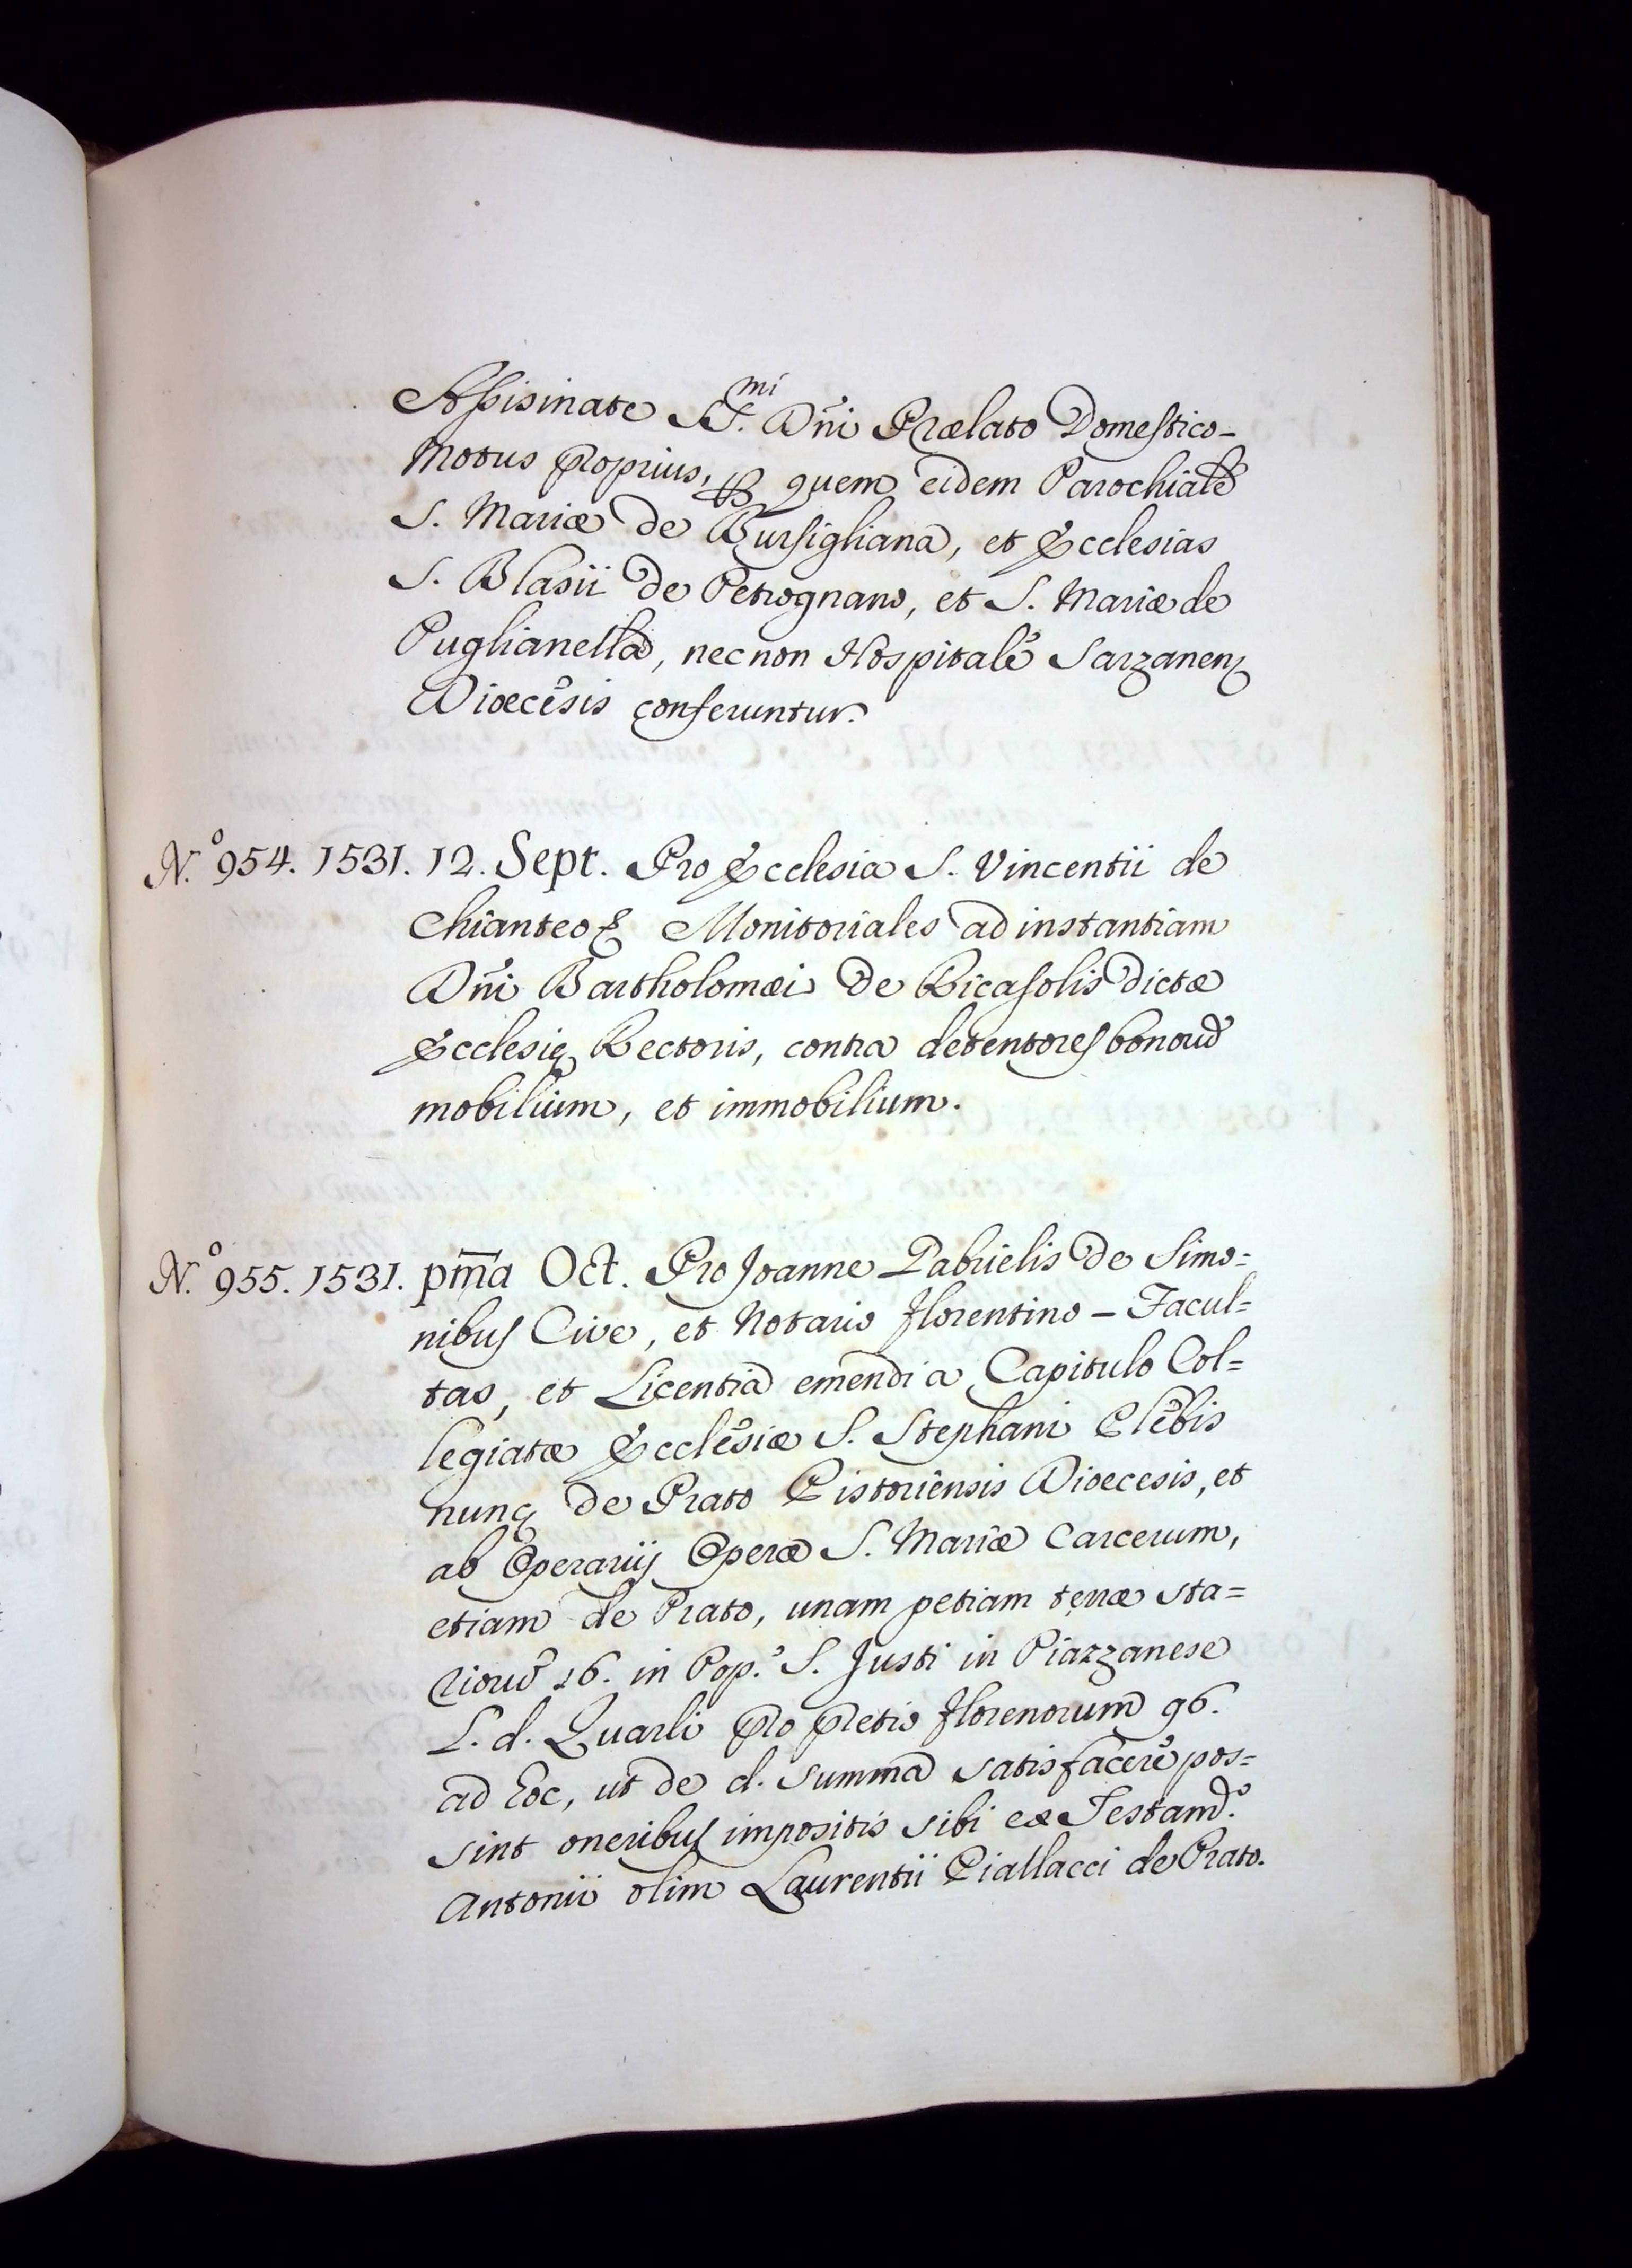 Assisinate SS.mi Dñi Prælato Domestico-
Motus proprius, per quem eidem Parochiale
S. Mariæ de Bursigliana, et Ecclesias
S. Blasii de Petrognano, et S. Mariæ de
Puglianella, necnon Hospitale Sarzanen
Dioecesis conferuntur.
N.º 954. 1531. 12. Sept. Pro Ecclesia S. Vincentii de
Chianteo Monitoriales ad instantiam
Dñi Bartholomæi de Ricasolis dictæ
Ecclesię Rectoris, contra detentores bonorũ
mobilium, et immobilium.
N.º 955. 1531. pm̃a Oct. Pro Joanne Gabrielis de Simo=
nibus Cive, et Notario florentino - Facul=
tas, et Licentia emendi a Capitulo Col=
legiatæ Ecclesiæ S. Stephani Plebis
nunc de Prato Pistoriensis Dioecesis, et
ab Operarijs Operæ S. Mariæ Carcerum,
etiam de Prato, unam petiam terræ sta=
riorũ 16. in Pop.º S. Justi in Piazzanese
L. d. Quarli pro pretio florenorum 96.
ad hoc, ut de d. summa satisfacere pos=
sint oneribus impositis sibi ex Testam.º
Antonii olim Laurentii Piallacci de Prato.